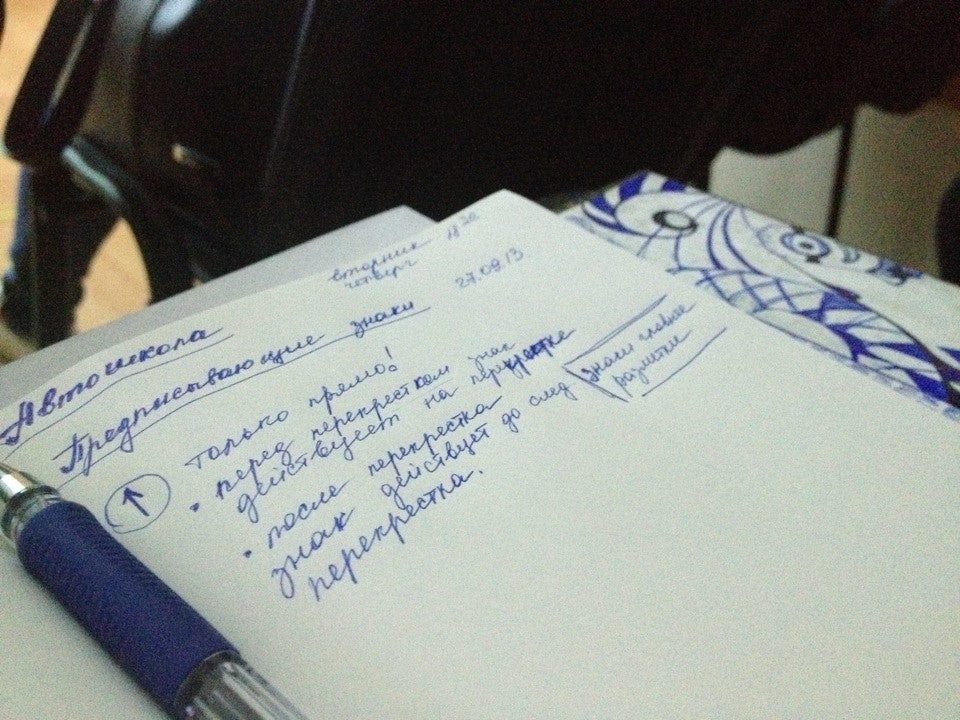 вторник
четверг
18 30
27.08.13
Автошкола
Предписывающие знаки
только прямо!
• перед перекрестком знак
действует на перекрестке
• после перекрестка
знак действует до след
перекрестка.
знаки главнее
разметки